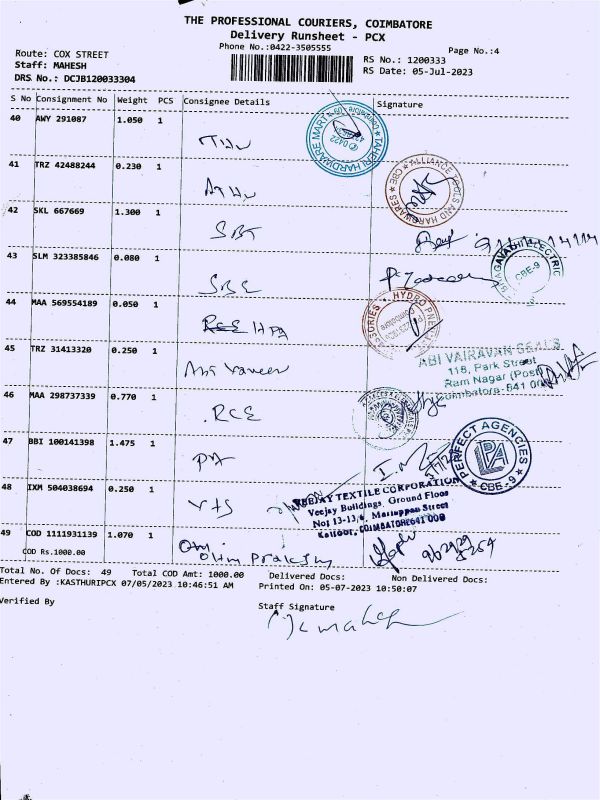 THE PROFESSIONAL COURIERS, COIMBATORE
Delivery Runsheet - PCX
Phone No.:0422-3505555
Page No.:4
Route: COX STREET
Staff: MAHESH
DRS No.: DCJB120033304
RS No.: 1200333
RS Date: 05-Jul-2023
S No Consignment No Weight PCS Consignee Details Signature
40 AWY 291087 1.050 1
41 TRZ 42488244 0.230 1
42 SKL 667669 1.300 1
ALLIANCE TOOLS AND HARDWARES CBE
43 SLM 323385846 0.080 1 SBE
BHAGAVATHI ELECTRIC
CBE-9
44 MAA 569554189 0.050 1 HPA
45 TRZ 31413320 0.250 1
ABI VAIRAVAN SEALS
118, Park Street
Ram Nagar (Post)
46 MAA 298737339 0.770 1 RCE
47 BBI 100141398 1.475 1 PA
PERFECT AGENCIES
PA
CBE-9
48 IXM 504038694 0.250 1 VTS
VEEJAY TEXTILE CORPORATION
Veejay Buildings, Ground Floor
Kattoor, COIMBATORE641 009
49 COD 1111931139 1.070 1
COD Rs.1000.00
Total No. Of Docs: 49 Total COD Amt: 1000.00 Delivered Docs: Non Delivered Docs:
Entered By :KASTHURIPCX 07/05/2023 10:46:51 AM Printed On: 05-07-2023 10:50:07
Verified By
Staff Signature